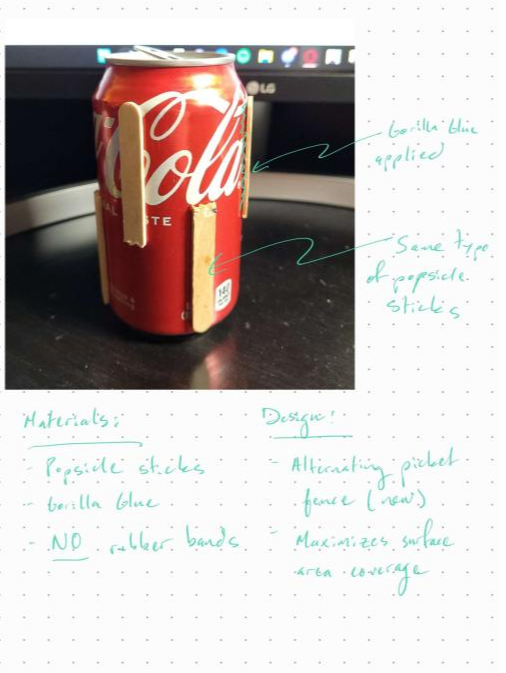 LG
Cola
TE
140
Gorilla Glue
applied
Same type
of popsicle
sticks
Materials:
- Popsicle sticks
- Gorilla Glue
- NO rubber bands
Design:
- Alternating picket
fence (new)
- Maximizes surface
area coverage